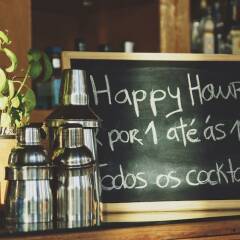 Happy Hour
por 1 até ás 1
Todos os cockta